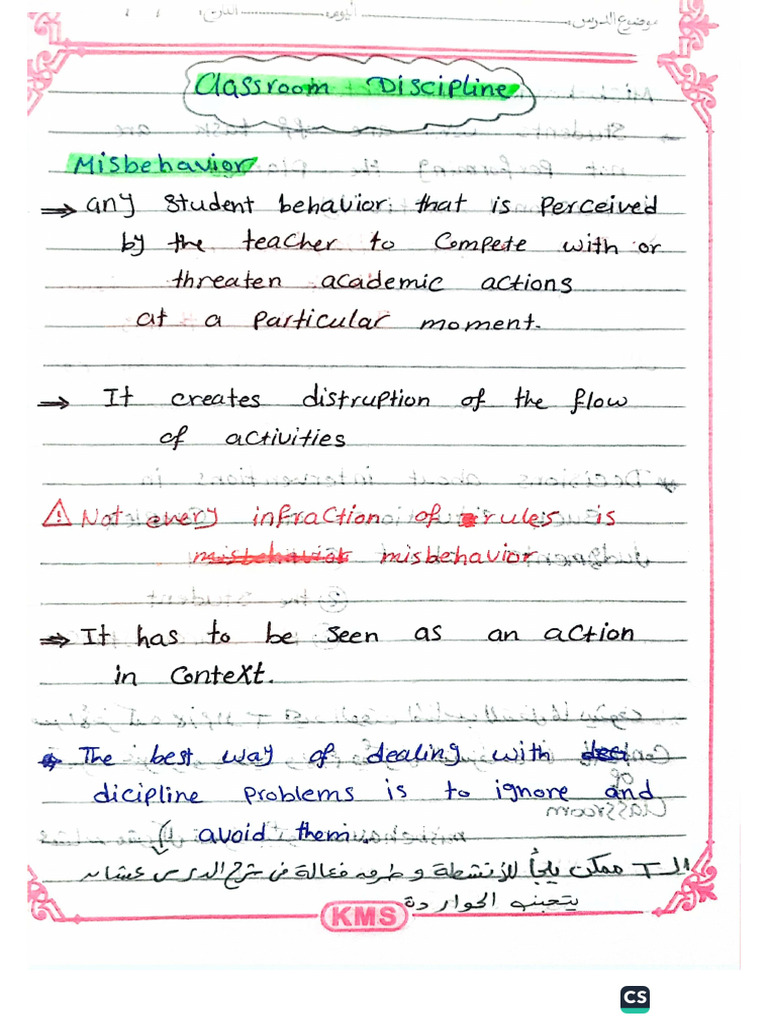 موضوع الدرس: اليوم: التاريخ: / /
Classroom Discipline
Misbehavior
⇒ any student behavior that is perceived
by the teacher to compete with or
threaten academic actions
at a particular moment.
⇒ It creates distruption of the flow
of activities
⚠ Not every infraction of rules is
misbehavior
⇒ It has to be seen as an action
in context.
The best way of dealing with
dicipline problems is to ignore and
avoid them.
الـ T ممكن يلجأ للأنشطة و طرق فعالة في شرح الدرس عشان
يتجنب الحوار دة
KMS
CS